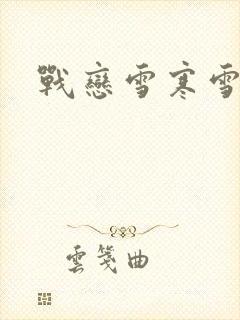 戰戀雪寒雪
雲箋曲